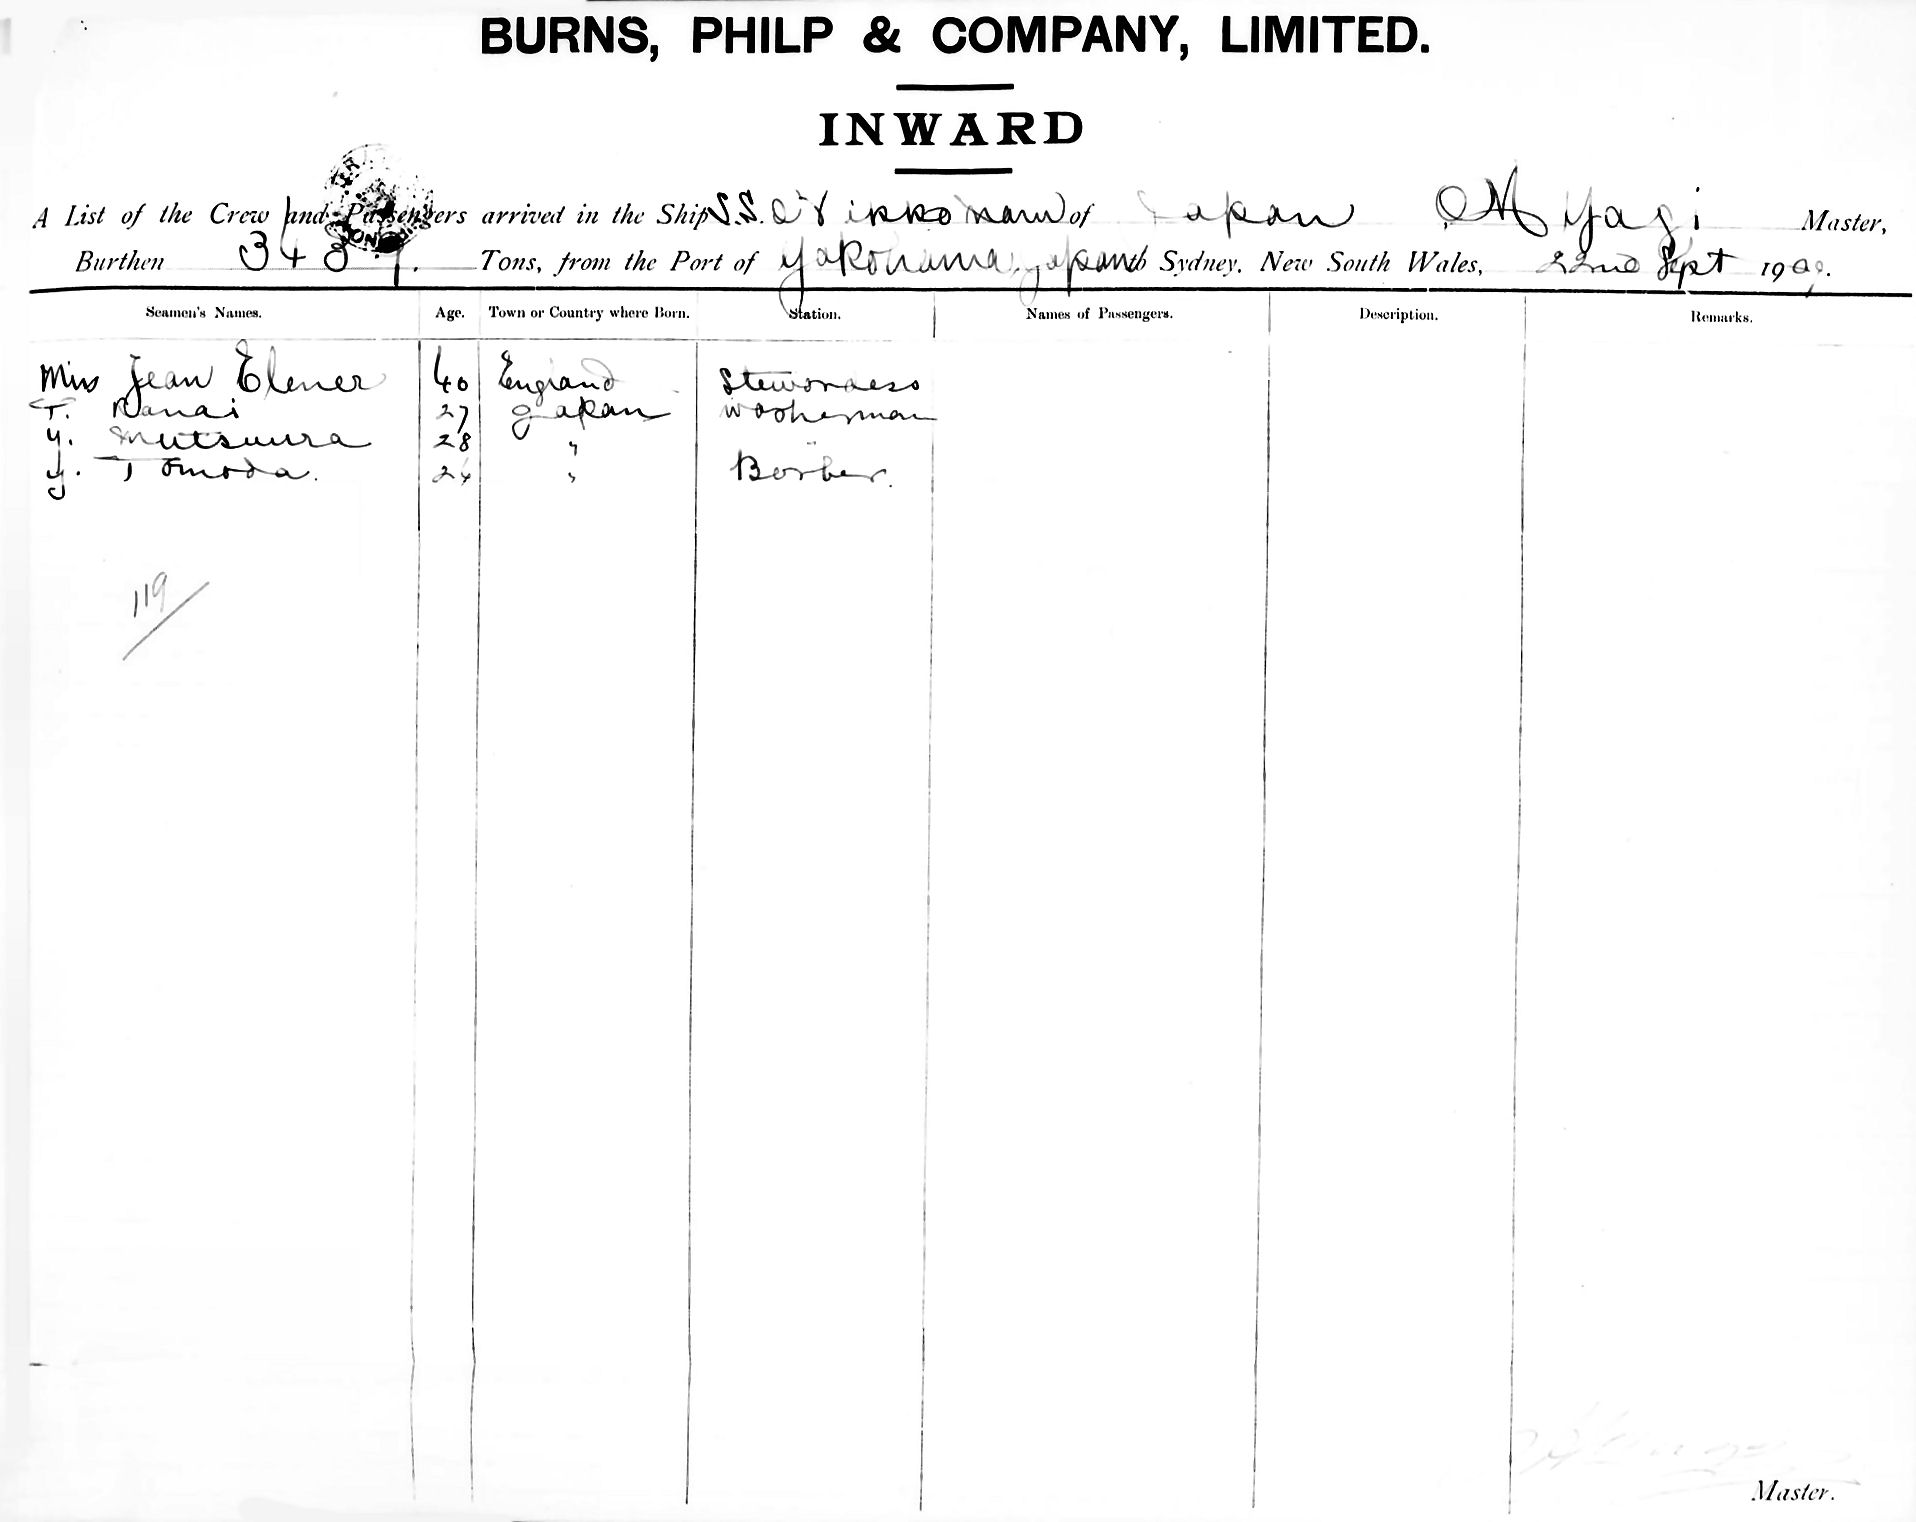 BURNS, PHILP & COMPANY, LIMITED.
INWARD
A List of the Crew and Passengers arrived in the Ship S.S. Nikko Maru of Japan M Yagi Master,
Burthen 3439. Tons, from the Port of Yokohama, Japan to Sydney, New South Wales, 22nd Sept 1909.
Seamen's Names. Age. Town or Country where Born. Station. Names of Passengers. Description. Remarks.
Miss Jean Elener 40 England Stewardess
T. Kanai 27 Japan Washerman
Y. Mutsuura 28 " "
Y. Tomoda. 24 " Barber.
119
Master.